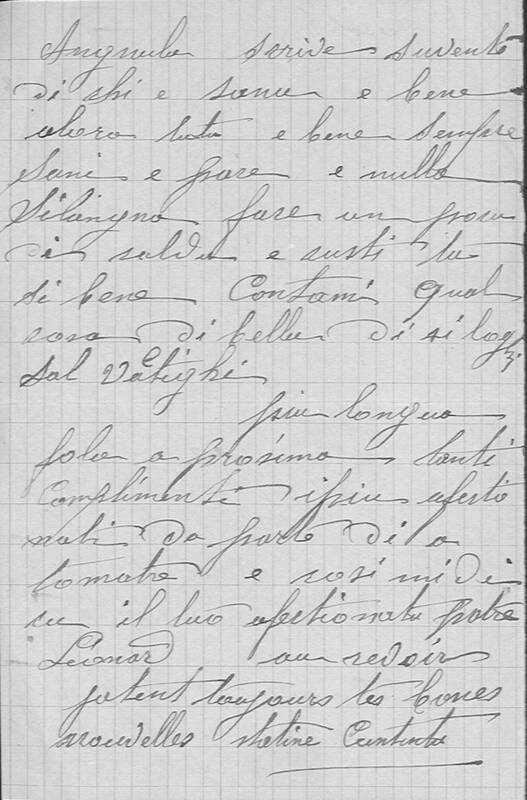 scrive suventi
di chi e sanu e bene
alora tutu e bene sempre
sani e pare e nulla
fare un pocu
di saldu e susti tu
si bene Contami qual
cosa di bellu di si log
sal Vatighi
piu longua
fola a prósima tanti
Complimenti i piu afectio
nati da parte di a
to matre e cosi mi di
cu il tuo afectionatu patre
Léonard au revoir
jatent toujours tes bones
nouvelles statine Cuntentu